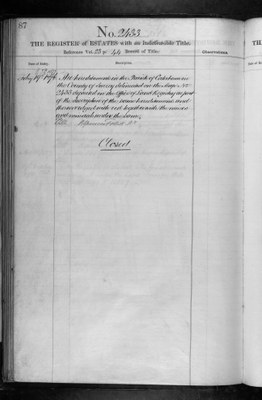 87
No. 2433
THE REGISTER of ESTATES with an Indefeasible Title.
Reference Vol. 23 p. 44 Record of Title.
Date of Entry.
Description.
Observations.
July 19th 1876
The hereditament in the Parish of Coledown in
the County of Surrey delineated on the Map No
2433 deposited in the Office of Land Registry as part
of the description of the same hereditament and
thereon edged with red together with the mines
and minerals under the same.
Closed
THE
Date of Entry